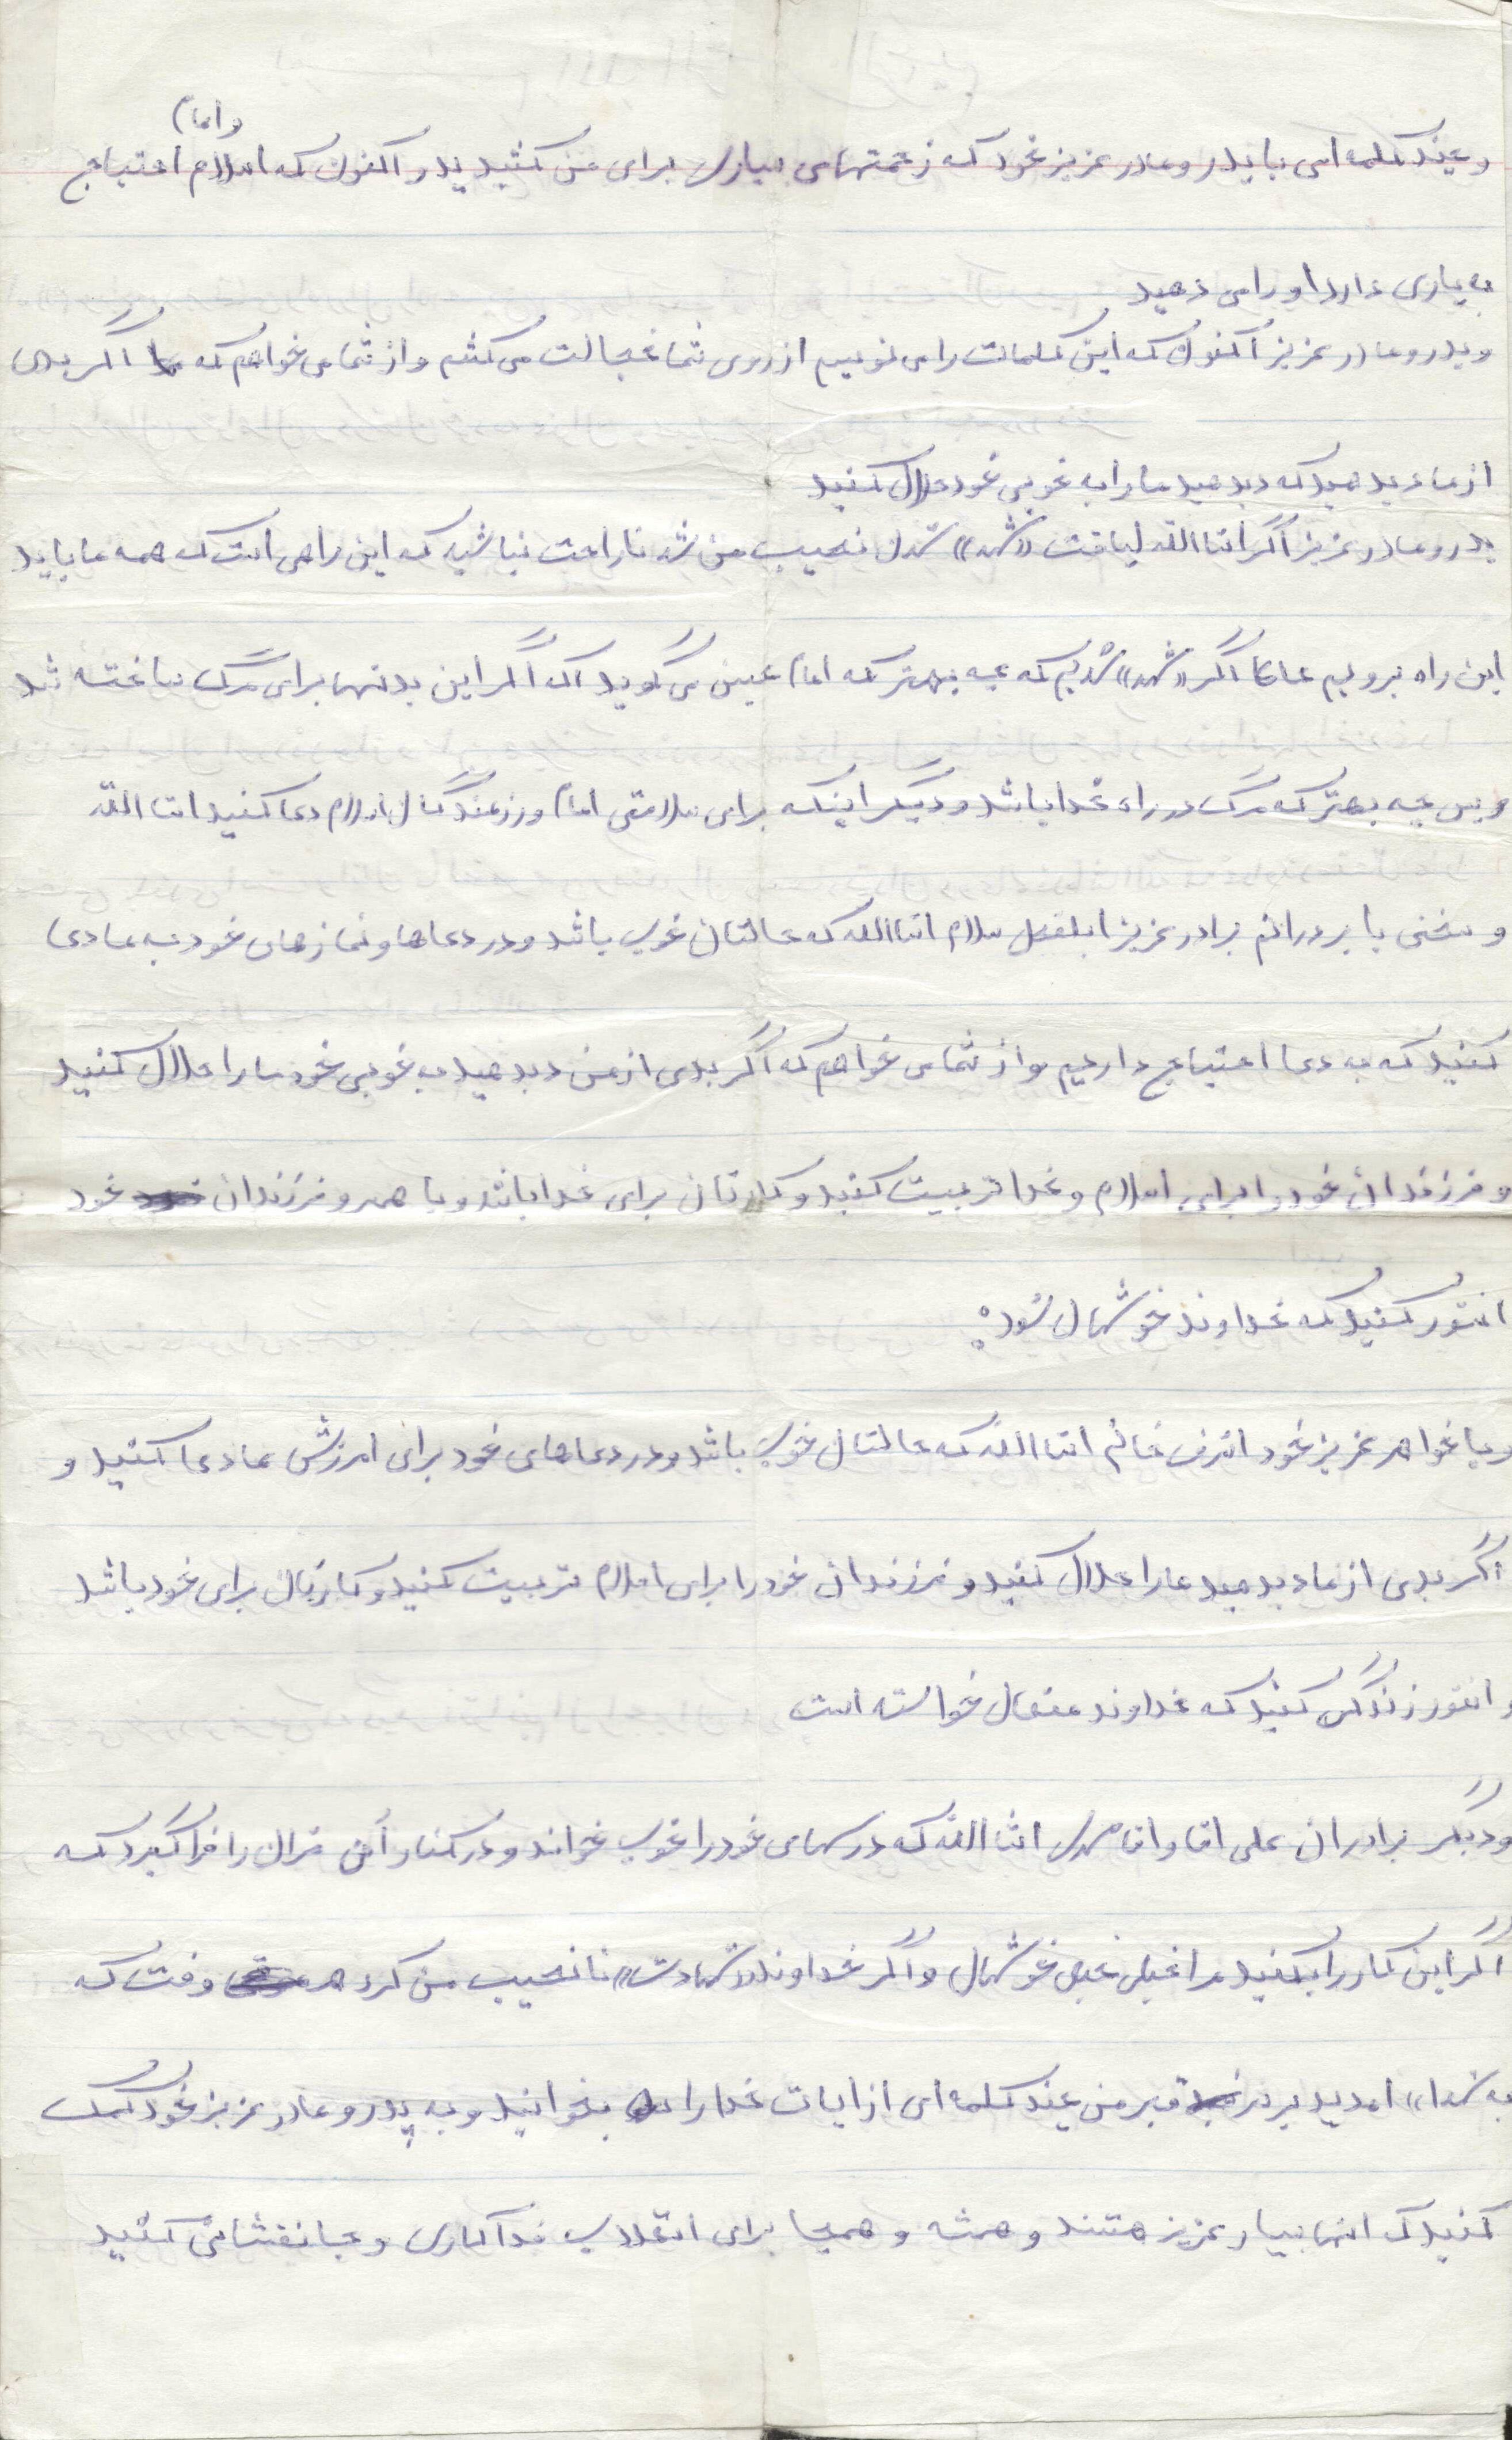 و چند کلمه ای با پدر و مادر عزیز خود که زحمتهای بسیاری برای من کشیدید و اکنون که اسلام و امام احتیاج
به یاری دارد او را می دهید
و پدر و مادر عزیز اکنون که این کلمات را می نویسم از روی شما خجالت می کشم و از شما می خواهم که اگر بدی
از ما دیدهید که دیدهید ما را به خوبی خود حلال کنید
پدر و مادر عزیز اگر انشاالله لیاقت «شهید» شدن نصیب من شد ناراحت نباشید که این راهی است که همه ما باید
این راه برویم حالا اگر «شهید» شدیم که چه بهتر که امام حسین می گوید که اگر این بدنها برای مرگ ساخته شد
و پس چه بهتر که مرگ در راه خدا باشد و دیگر اینکه برای سلامتی امام و رزمندگان اسلام دعا کنید انشاالله
و سخنی با بردرانم برادر عزیز ابلفضل سلام انشاالله که حالتان خوب باشد و در دعاها و نمازهای خود به ما دعا
کنید که به دعا احتیاج داریم و از شما می خواهم که اگر بدی از من دیدهید به خوبی خود ما را حلال کنید
و فرزندان خود را برای اسلام و خدا تربیت کنید و کارتان برای خدا باشد و با همسر و فرزندان خود
انتور کنید که خداوند خوشهال شود.
و با خواهر عزیز خود اشرف خانم انشاالله که حالتان خوب باشد و در دعاهای خود برای امرزش ما دعا کنید و
اگر بدی از ما دیدهید ما را حلال کنید و فرزندان خود را برای اسلام تربیت کنید و کارتان برای خود باشد
و انتور زندگی کنید که خداوند متعال خواسته است
و دیگر برادران علی اقا و اقا مهدی انشاالله که درسهای خود را خوب خواند و در کنار آن قران را فرا گیرد که
اگر این کار را بکنید مرا خیلی خیلی خوشهال و اگر خداوند «شهادت» را نصیب من کرد هر وقت که
به شهدا» امدید بر سر قبر من چند کلمه ای از ایات خدا را بخوانید و به پدر و مادر عزیز خود کمک
کنید که انها بسیار عزیز هستند و همشه و همجا برای انقلاب فداکاری و جانفشانی کنید